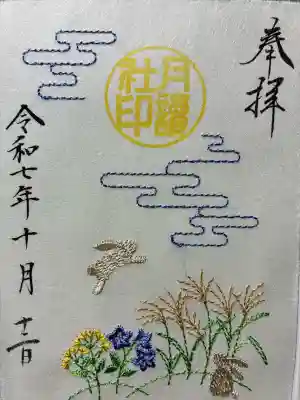 奉拝
月讀
社印
令和七年十月十二日